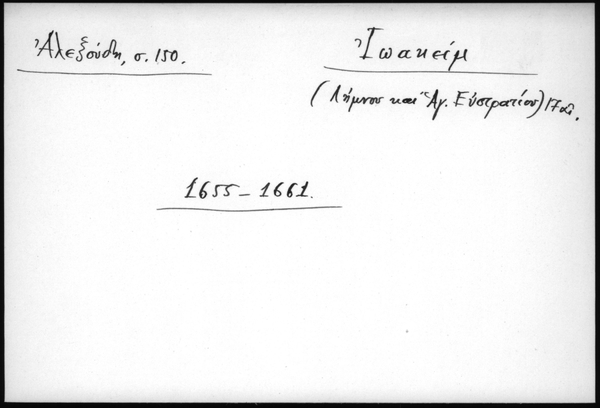 Ἀλεξούδη, σ. 150.
Ἰωακείμ
(Λήμνου καὶ Ἁγ. Εὐστρατίου) 17 αἰ.
1655 – 1661.